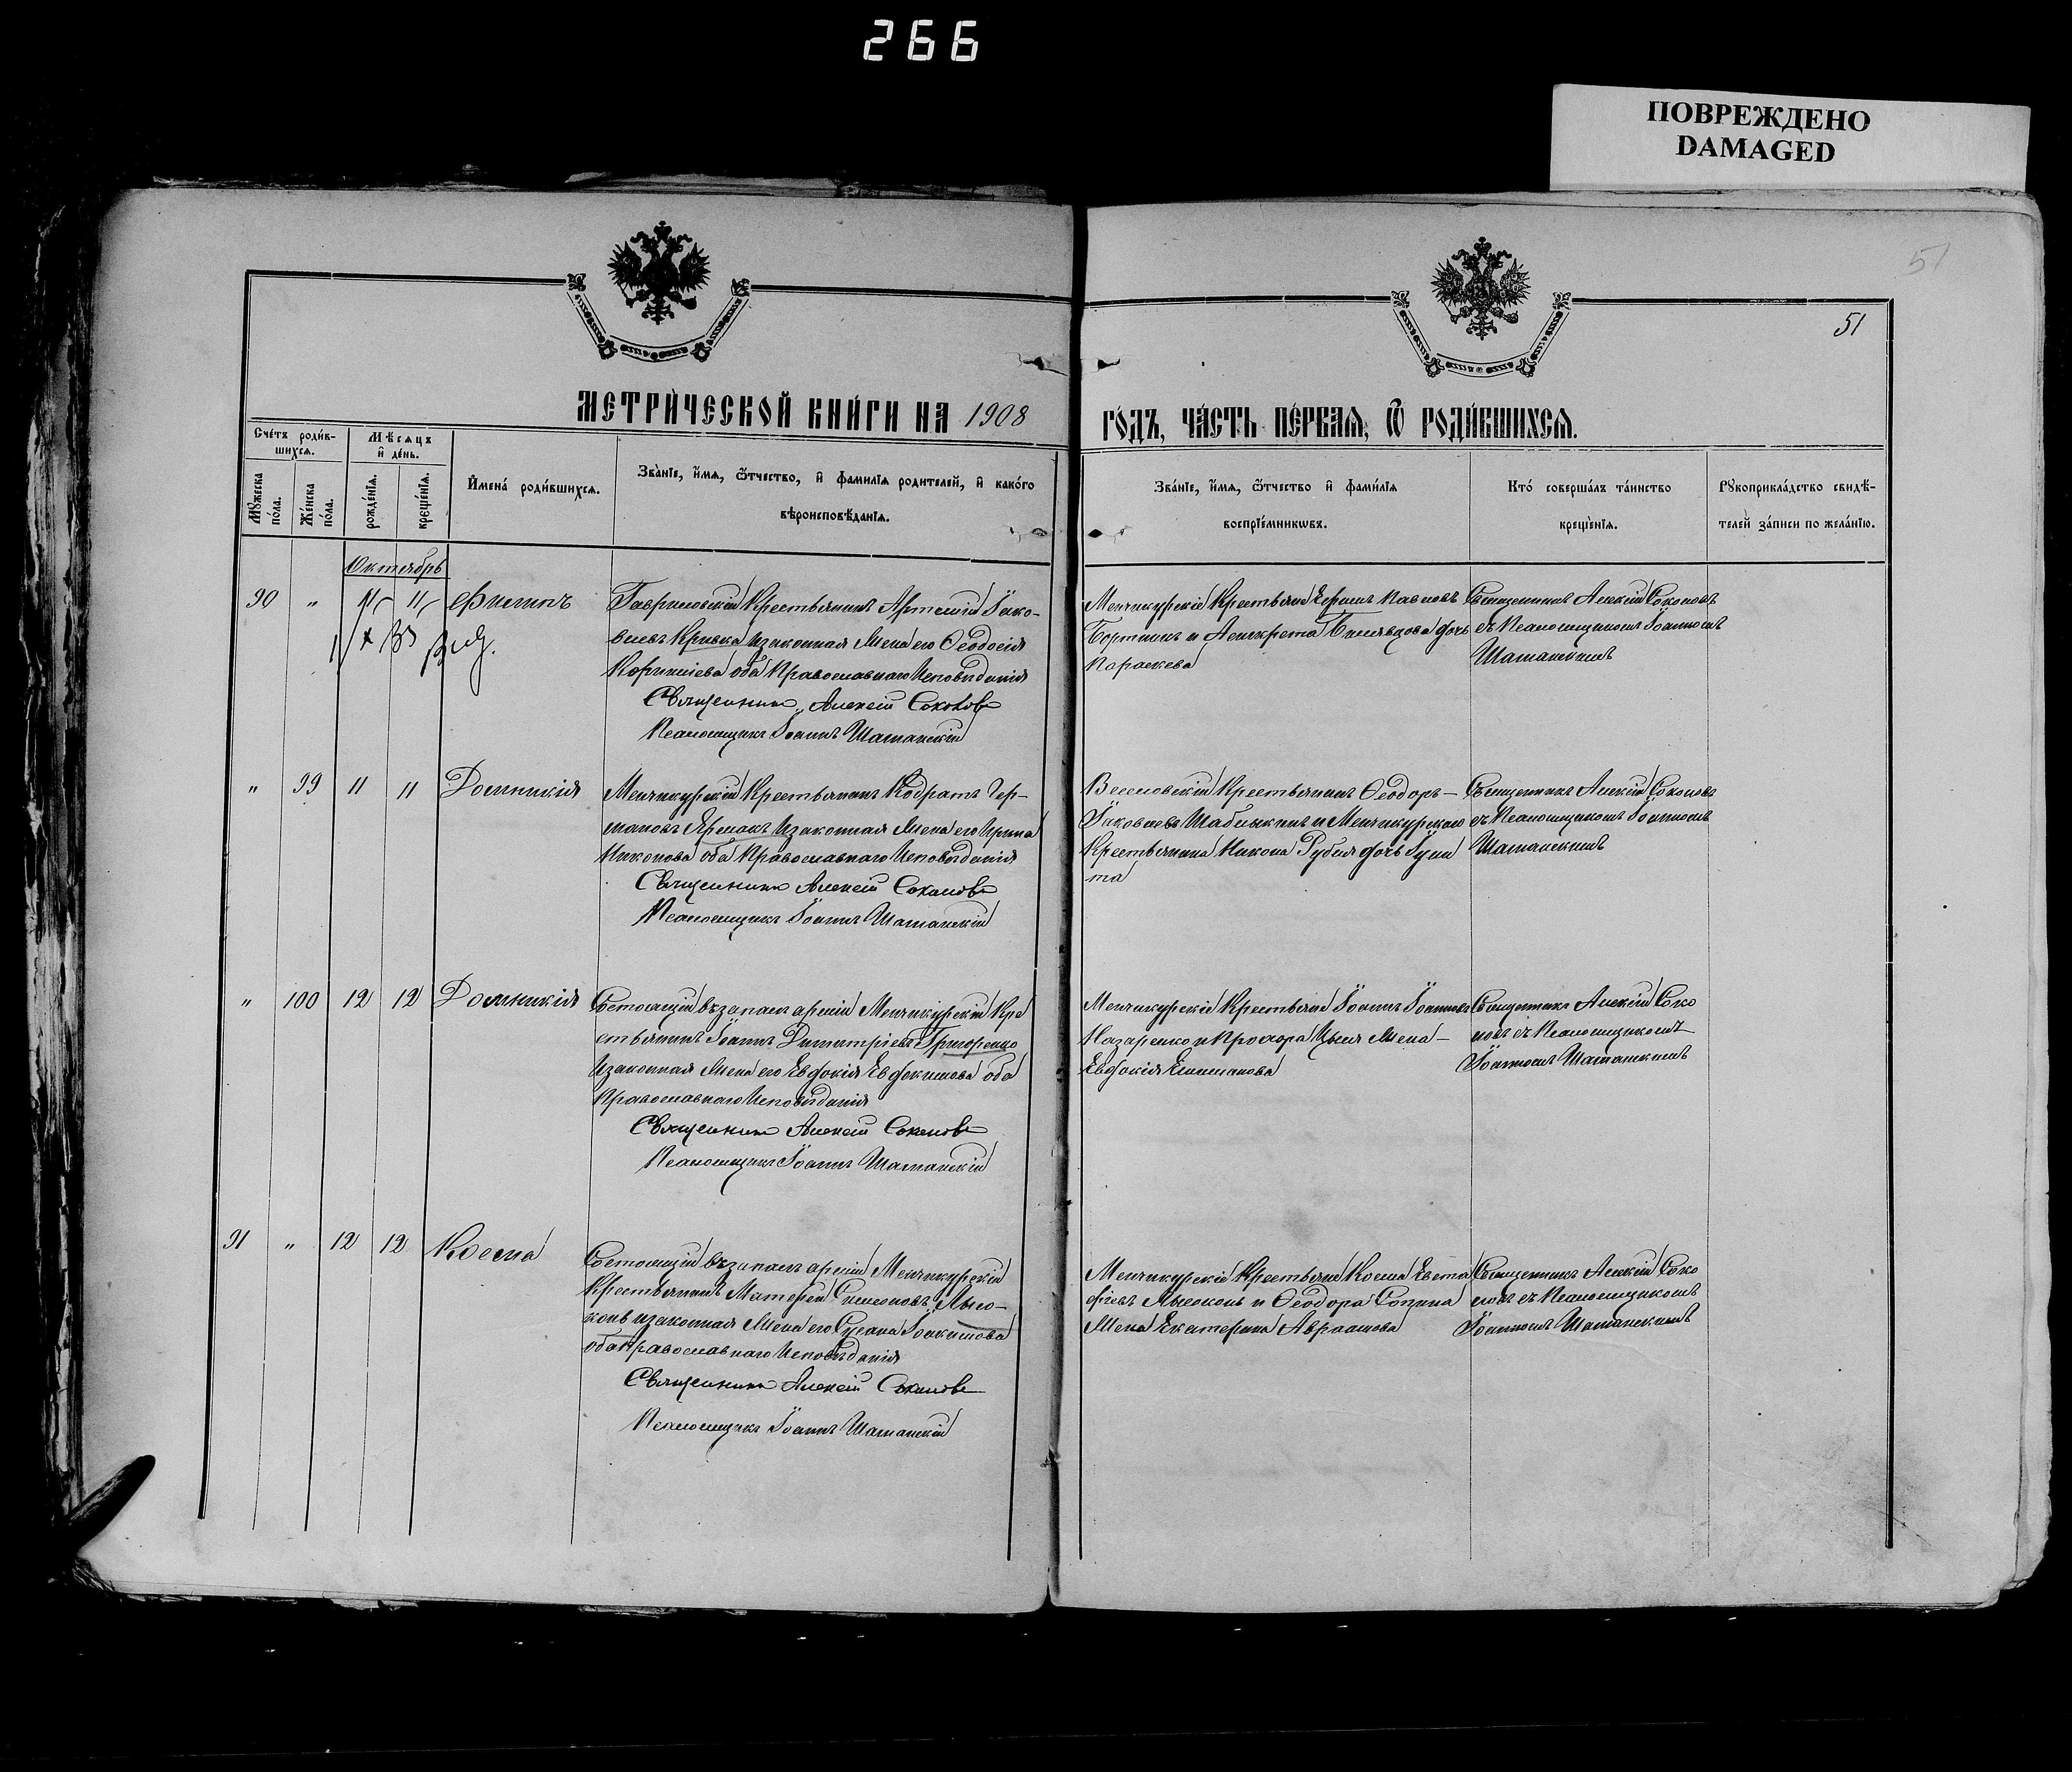 266
ПОВРЕЖДЕНО
DAMAGED
51
51
МЕТРИ́ЧЕСКОЙ КНИ́ГИ НА 1908
ГО́ДЪ, ЧА́СТЬ ПЕ́РВАЯ, Ѿ РОДИ́ВШИХСЯ.
Сче́тъ роди́в-
шихся.
Мѣ́сяцъ
и҆ де́нь.
Мꙋ́жеска по́ла.
Же́нска по́ла.
рожде́нїя.
креще́нїя.
И҆мена̀ роди́вшихся.
Зва́нїе, и҆́мя, ѻ҆́тчество, и҆ фами́лїя роди́телей, и҆ како́го
вѣроисповѣ́данїя.
Зва́нїе, и҆́мя, ѻ҆́тчество и҆ фами́лїя
воспрїе́мникѡвъ.
Кто̀ соверша́лъ та́инство
креще́нїя.
Рꙋкоприкла́дство свидѣ́-
телей за́писи по жела́нїю.
Октябрь
90 " 11 11 Филиппъ
Гавриловскій Крестьянинъ Артемій Іако-
влевъ Кривка и законная Жена его Ѳеодосія
Корнилиева оба Православнаго Исповѣданія
Священникъ Алексій Соколовъ
Псаломщикъ Іоаннъ Шаманскій
Менчикурскіе Крестьяне Ефимъ Павловъ
Бортникъ и дочь
Параскева
Священникъ Алексій Соколовъ
съ Псаломщикомъ Іоанномъ
Шаманскимъ
" 99 11 11 Домникія
Менчикурскій Крестьянинъ Кодратъ Гер-
мановъ Ермакъ и законная Жена его Ирина
Никонова оба Православнаго Исповѣданія
Священникъ Алексій Соколовъ
Псаломщикъ Іоаннъ Шаманскій
Веселовскій Крестьянинъ Ѳеодоръ —
Іаковлевъ Шаблыкинъ и Менчикурскаго
Крестьянина Никона Рубля дочь
та
Священникъ Алексій Соколовъ
съ Псаломщикомъ Іоанномъ
Шаманскимъ
" 100 12 12 Домникія
Состоящій въ запасѣ арміи Менчикурскій Кре
стьянинъ Іоаннъ Димитріевъ Григоренко
и законная Жена его Евдокія Евдокимова оба
Православнаго Исповѣданія
Священникъ Алексій Соколовъ
Псаломщикъ Іоаннъ Шаманскій
Менчикурскіе Крестьяне Іоаннъ Іоанновъ
Назаренко и Прохора Жена —
Евдокія
Священникъ Алексій Соко
ловъ съ Псаломщикомъ
Іоанномъ Шаманскимъ
91 " 12 12 Косма
Состоящій въ запасѣ арміи Менчикурскій
Крестьянинъ Матѳей Симоновъ Лысо-
конь и законная Жена его Сусана Іоакимова
оба Православнаго Исповѣданія
Священникъ Алексій Соколовъ
Псаломщикъ Іоаннъ Шаманскій
Менчикурскіе Крестьяне Косма Евста
фіевъ Лысоконь и Ѳеодора Сопина
Жена Екатерина Авраамова
Священникъ Алексій Соко
ловъ съ Псаломщикомъ
Іоанномъ Шаманскимъ